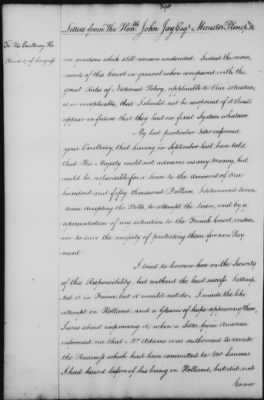 Letters from the Honble John Jay Esqr Minister Plenepy &c
To His Excellency the
President of Congress
are questions which still remain undecided. Indeed the move-
ments of this Court in general when compared with the
great Rules of National Policy, applicable to their situation,
is so inexplicable, that I should not be surprized if it should
appear in future that they had no fixed System whatever.
My last particular Letter informed
your Excellency that having in September last been told
that His Majesty could not advance us any Money, but
would be responsible for a Loan to the amount of One
hundred and fifty thousand Dollars, I determined to con-
tinue accepting the Bills, to attempt the Loan, and by a
representation of my situation to the French Court, endea-
vor to save the necessity of protesting them for non Pay-
ment
I tried to borrow here on the Security
of this Responsibility, but without the least success. I attemp-
ted it in France, but it would not do. I made the like
attempt in Holland, and a Gleam of hope appearing there,
I was about improving it, when a Letter from America
informed me that Mr Adams was authorized to execute
the Business which had been committed to Mr Laurens
I had heard before of his being in Holland, but did not
know